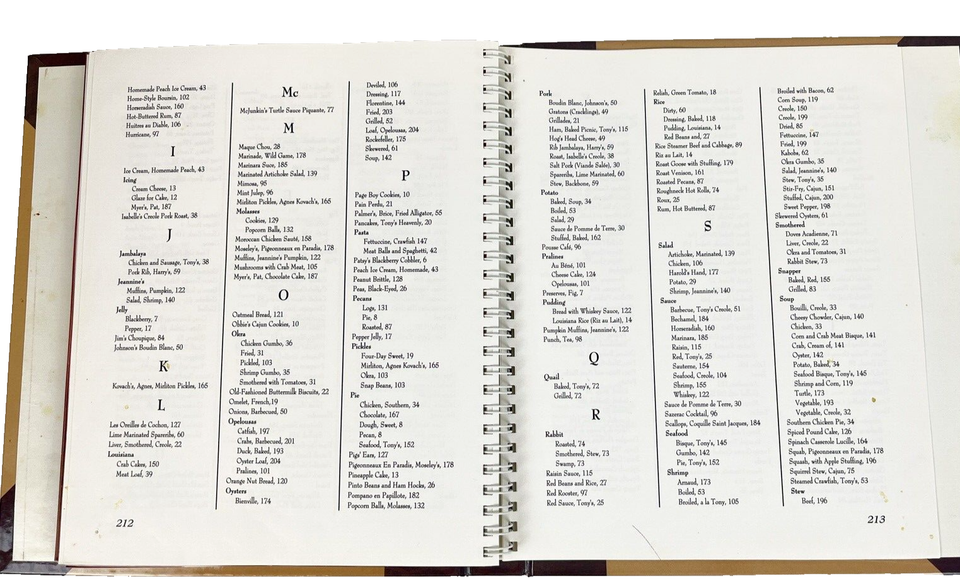 Homemade Peach Ice Cream, 43
Home-Style Boursin, 102
Horseradish Sauce, 160
Hot-Buttered Rum, 87
Huitres au Diable, 106
Hurricane, 97
I
Ice Cream, Homemade Peach, 43
Icing
Cream Cheese, 13
Glaze for Cake, 12
Myer's, Pat, 187
Isabelle's Creole Pork Roast, 38
J
Jambalaya
Chicken and Sausage, Tony's, 38
Pork Rib, Harry's, 59
Jeannine's
Muffins, Pumpkin, 122
Salad, Shrimp, 140
Jelly
Blackberry, 7
Pepper, 17
Jim's Choupique, 84
Johnson's Boudin Blanc, 50
K
Kovach's, Agnes, Mirliton Pickles, 165
L
Les Oreilles de Cochon, 127
Lime Marinated Spareribs, 60
Liver, Smothered, Creole, 22
Louisiana
Crab Cakes, 150
Meat Loaf, 39
212
Mc
McJunkin's Turtle Sauce Piquante, 77
M
Maque Chou, 28
Marinade, Wild Game, 178
Marinara Suce, 185
Marinated Artichoke Salad, 139
Mimosa, 95
Mint Julep, 96
Mirliton Pickles, Agnes Kovach's, 165
Molasses
Cookies, 129
Popcorn Balls, 132
Moroccan Chicken Sauté, 158
Moseley's, Pigeonneaux en Paradis, 178
Muffins, Jeannine's Pumpkin, 122
Mushrooms with Crab Meat, 105
Myer's, Pat, Chocolate Cake, 187
O
Oatmeal Bread, 121
Obbie's Cajun Cookies, 10
Okra
Chicken Gumbo, 36
Fried, 31
Pickled, 103
Shrimp Gumbo, 35
Smothered with Tomatoes, 31
Old-Fashioned Buttermilk Biscuits, 22
Omelet, French,19
Onions, Barbecued, 50
Opelousas
Catfish, 197
Crabs, Barbecued, 201
Duck, Baked, 193
Oyster Loaf, 204
Pralines, 101
Orange Nut Bread, 120
Oysters
Bienville, 174
Deviled, 106
Dressing, 117
Florentine, 144
Fried, 203
Grilled, 52
Loaf, Opelousas, 204
Rockefeller, 175
Skewered, 61
Soup, 142
P
Page Boy Cookies, 10
Pain Perdu, 21
Palmer's, Brice, Fried Alligator, 55
Pancakes, Tony's Heavenly, 20
Pasta
Fettuccine, Crawfish 147
Meat Balls and Spaghetti, 42
Patsy's Blackberry Cobbler, 6
Peach Ice Cream, Homemade, 43
Peanut Brittle, 128
Peas, Black-Eyed, 26
Pecans
Logs, 131
Pie, 8
Roasted, 87
Pepper Jelly, 17
Pickles
Four-Day Sweet, 19
Mirliton, Agnes Kovach's, 165
Okra, 103
Snap Beans, 103
Pie
Chicken, Southern, 34
Chocolate, 167
Dough, Sweet, 8
Pecan, 8
Seafood, Tony's, 152
Pigs' Ears, 127
Pigeonneaux En Paradis, Moseley's, 178
Pineapple Cake, 13
Pinto Beans and Ham Hocks, 26
Pompano en Papillote, 182
Popcorn Balls, Molasses, 132
Pork
Boudin Blanc, Johnson's, 50
Grattons (Cracklings), 49
Grillades, 21
Ham, Baked Picnic, Tony's, 115
Hog's Head Cheese, 49
Rib Jambalaya, Harry's, 59
Roast, Isabelle's Creole, 38
Salt Pork (Viande Salée), 30
Spareribs, Lime Marinated, 60
Stew, Backbone, 59
Potato
Baked, Soup, 34
Boiled, 53
Salad, 29
Sauce de Pomme de Terre, 30
Stuffed, Baked, 162
Pousse Café, 96
Pralines
An Béné, 101
Cheese Cake, 124
Opelousas, 101
Preserves, Fig, 7
Pudding
Bread with Whiskey Sauce, 122
Louisiana Rice (Riz au Lait), 14
Pumpkin Muffins, Jeannine's, 122
Punch, Tea, 98
Q
Quail
Baked, Tony's, 72
Grilled, 72
R
Rabbit
Roasted, 74
Smothered, Stew, 73
Swamp, 73
Raisin Sauce, 115
Red Beans and Rice, 27
Red Rooster, 97
Red Sauce, Tony's, 25
Relish, Green Tomato, 18
Rice
Dirty, 60
Dressing, Baked, 118
Pudding, Louisiana, 14
Red Beans and, 27
Rice Steamer Beef and Cabbage, 89
Riz au Lait, 14
Roast Goose with Stuffing, 179
Roast Venison, 161
Roasted Pecans, 87
Roughneck Hot Rolls, 74
Roux, 25
Rum, Hot Buttered, 87
S
Salad
Artichoke, Marinated, 139
Chicken, 106
Harold's Hard, 177
Potato, 29
Shrimp, Jeannine's, 140
Sauce
Barbecue, Tony's Creole, 51
Bechamel, 184
Horseradish, 160
Marinara, 185
Raisin, 115
Red, Tony's, 25
Sauterne, 154
Seafood, Creole, 104
Shrimp, 155
Whiskey, 122
Sauce de Pomme de Terre, 30
Sazerac Cocktail, 96
Scallops, Coquille Saint Jacques, 184
Seafood
Bisque, Tony's, 145
Gumbo, 142
Pie, Tony's, 152
Shrimp
Arnaud, 173
Boiled, 53
Broiled, a la Tony, 105
Broiled with Bacon, 62
Corn Soup, 119
Creole, 150
Creole, 199
Dried, 85
Fettuccine, 147
Fried, 199
Kabobs, 62
Okra Gumbo, 35
Salad, Jeannine's, 140
Stew, Tony's, 35
Stir-Fry, Cajun, 151
Stuffed, Cajun, 200
Sweet Pepper, 198
Skewered Oysters, 61
Smothered
Doves Acadienne, 71
Liver, Creole, 22
Okra and Tomatoes, 31
Rabbit Stew, 73
Snapper
Baked, Red, 155
Grilled, 83
Soup
Bouilli, Creole, 33
Cheesy Chowder, Cajun, 140
Chicken, 33
Corn and Crab Meat Bisque, 141
Crab, Cream of, 141
Oyster, 142
Potato, Baked, 34
Seafood Bisque, Tony's, 145
Shrimp and Corn, 119
Turtle, 173
Vegetable, 193
Vegetable, Creole, 32
Southern Chicken Pie, 34
Spiced Pound Cake, 126
Spinach Casserole Lucille, 164
Squab, Pigeonneaux en Paradis, 178
Squash, with Apple Stuffing, 196
Squirrel Stew, Cajun, 75
Steamed Crawfish, Tony's, 53
Stew
Beef, 196
213